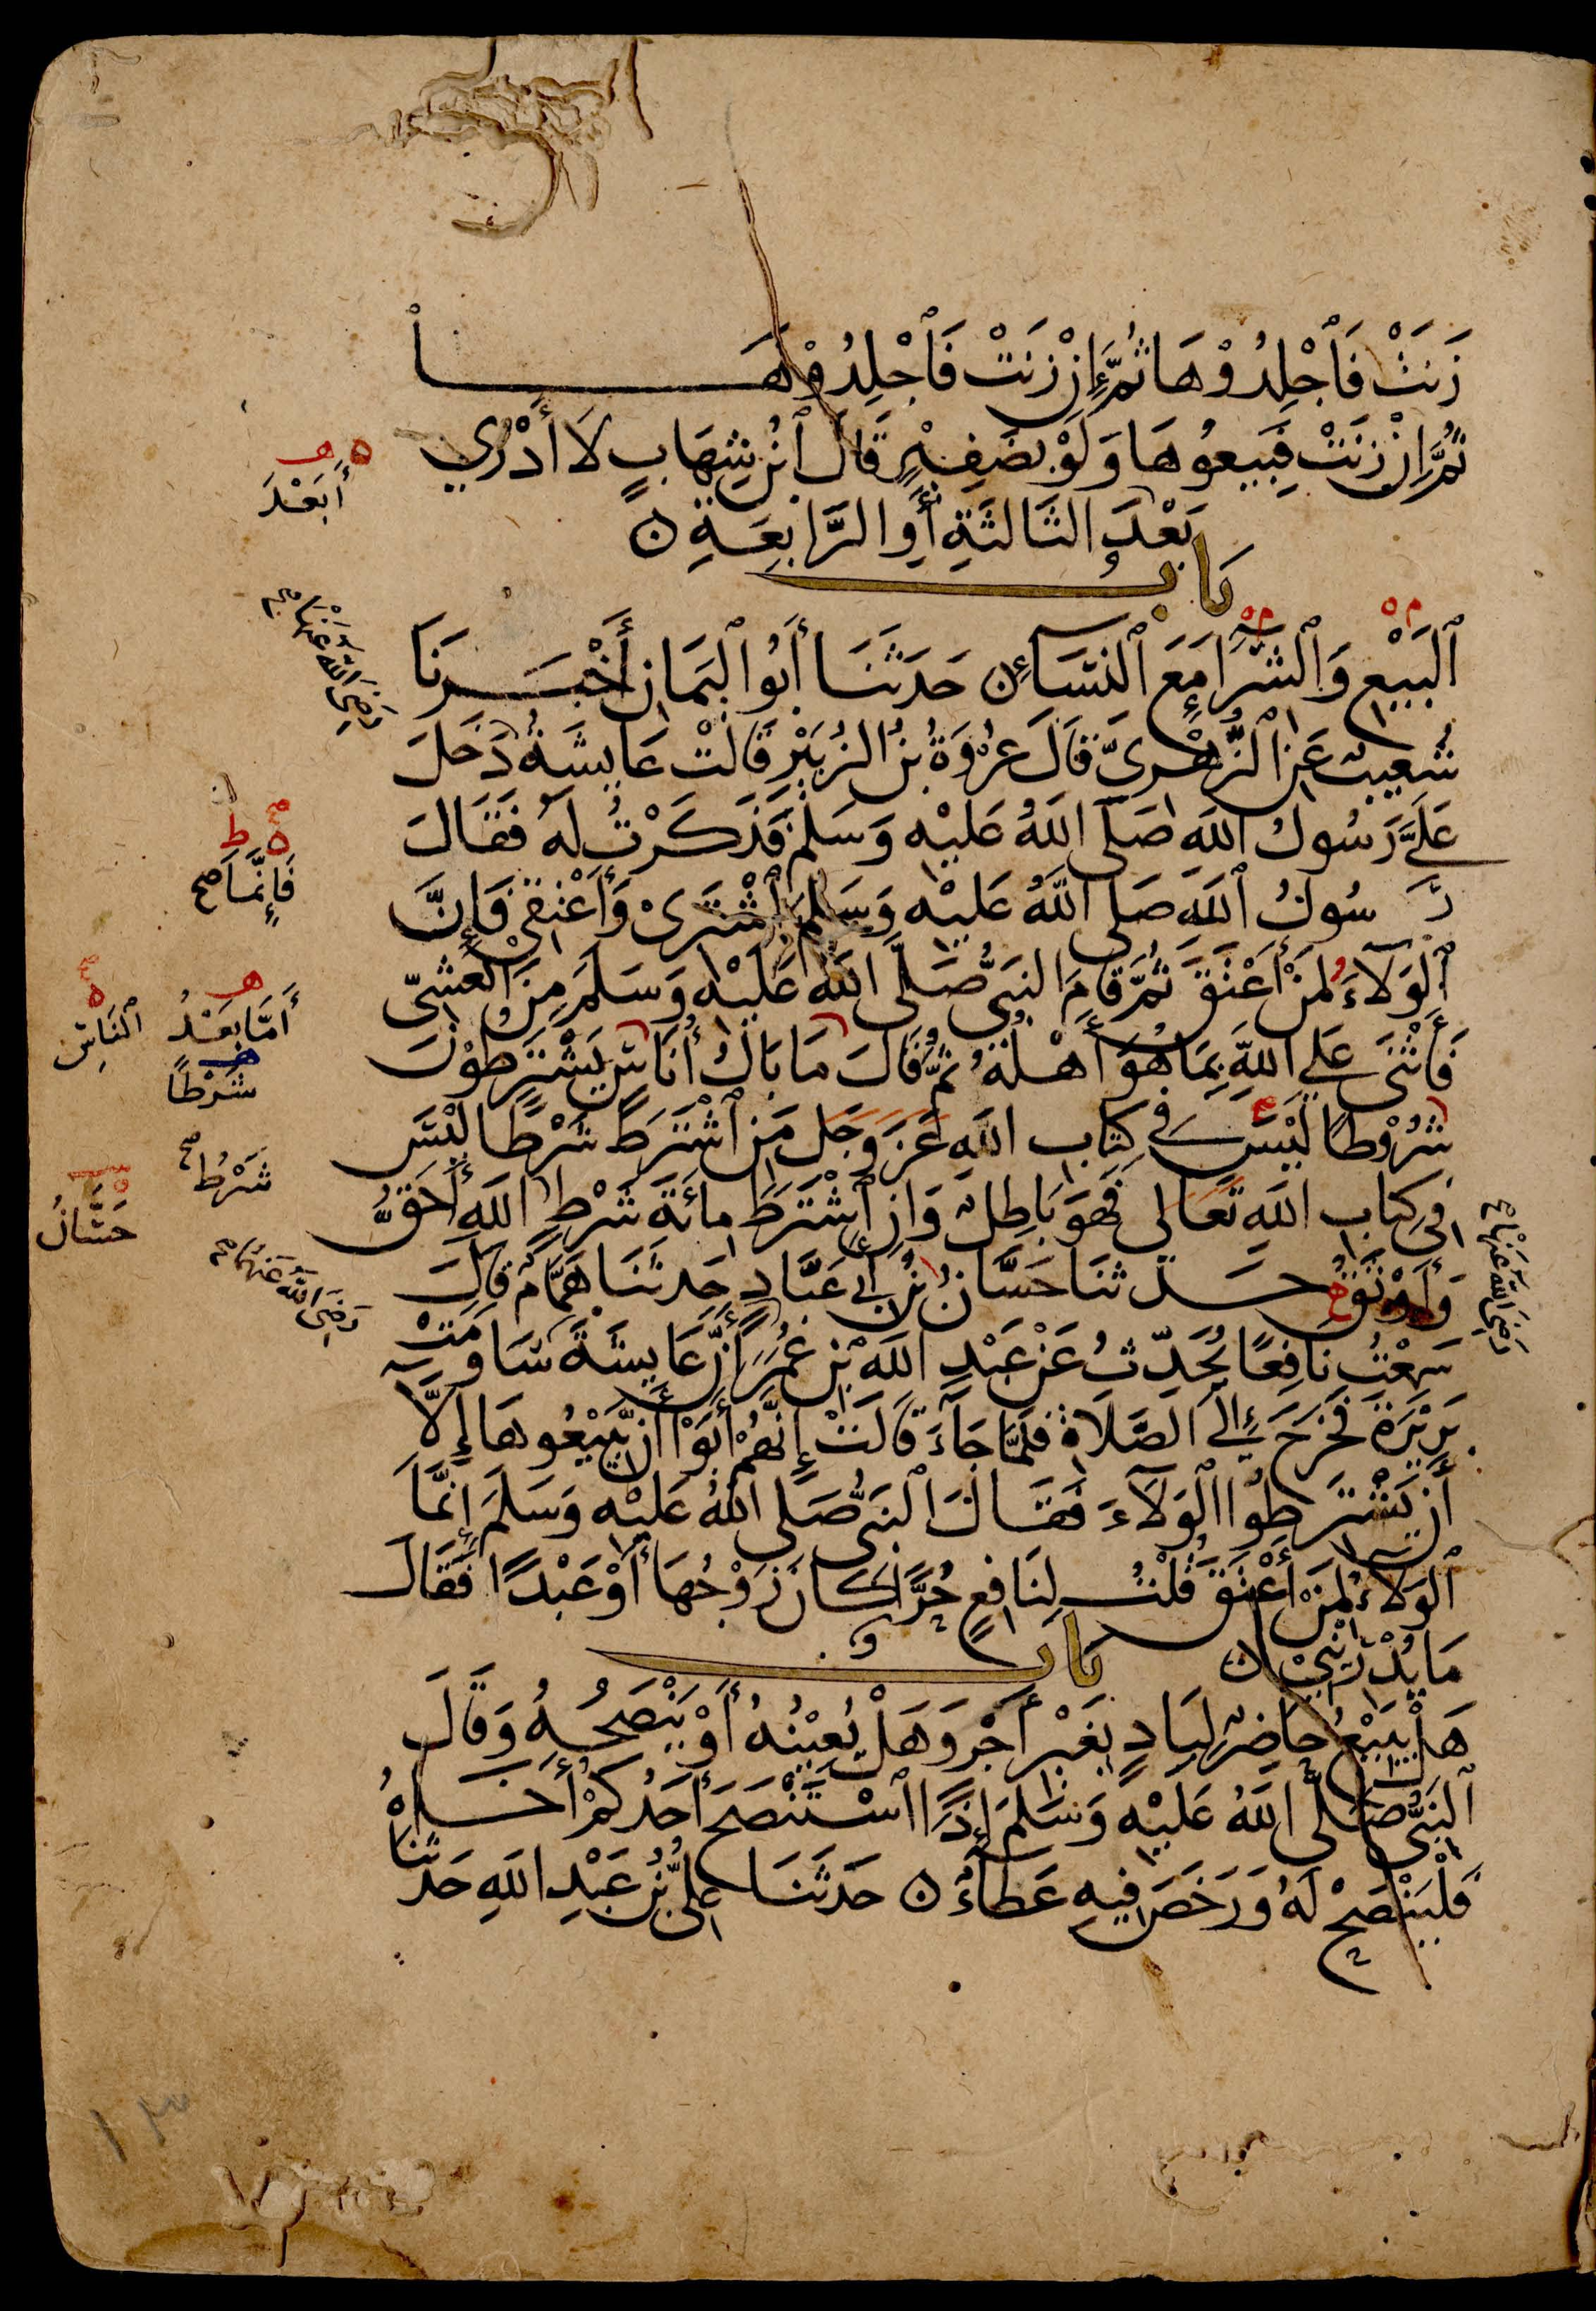 زَنَتْ فَاجْلِدُوْهَا ثُمَّ إِنْ زَنَتْ فَاجْلِدُوْهَا
ثُمَّ إِنْ زَنَتْ فَبِيعُوهَا وَلَوْ بِضَفِيْرٍ قَالَ ابْنُ شِهَابٍ لَا أَدْرِي
أَبَعْدَ
بَعْدَ الثَّالِثَةِ أَوِ الرَّابِعَةِ ن
بَابُ
الْبَيْعِ وَالشِّرَا مَعَ النِّسَاءِ ن حَدَّثَنَا أَبُو الْيَمَانِ أَخْبَرَنَا
رَضِيَ اللَّهُ عَنْهَا صح
شُعَيْبٌ عَنِ الزُّهْرِيِّ قَالَ عُرْوَةُ بْنُ الزُّبَيْرِ قَالَتْ عَايِشَةُ دَخَلَ
عَلَيَّ رَسُولُ اللَّهِ صَلَّى اللَّهُ عَلَيْهِ وَسَلَّمَ فَذَكَرْتُ لَهُ فَقَالَ
رَسُولُ اللَّهِ صَلَّى اللَّهُ عَلَيْهِ وَسَلَّمَ اشْتَرِيْ وَأَعْتِقِيْ فَإِنَّ
فَإِنَّمَا صح
الْوَلَاءُ لِمَنْ أَعْتَقَ ثُمَّ قَامَ النَّبِيُّ صَلَّى اللَّهُ عَلَيْهِ وَسَلَّمَ مِنَ الْعَشِيِّ
فَأَثْنَى عَلَى اللَّهِ بِمَا هُوَ أَهْلُهُ ثُمَّ قَالَ مَا بَالُ أُنَاسٍ يَشْتَرِطُوْنَ
أَمَّا بَعْدُ
النَّاسِ
شَرْطًا
شُرُوْطًا لَيْسَ فِي كِتَابِ اللَّهِ عَزَّ وَجَلَّ مَنِ اشْتَرَطَ شَرْطًا لَيْسَ
فِي كِتَابِ اللَّهِ تَعَالَى فَهُوَ بَاطِلٌ وَإِنِ اشْتَرَطَ مِائَةَ شَرْطٍ اللَّهِ أَحَقُّ
شَرْطُ صح
وَأَوْثَقُ حَدَّثَنَا حَسَّانُ بْنُ أَبِي عَبَّادٍ حَدَّثَنَا هَمَّامٌ قَالَ
حَسَّانُ
سَمِعْتُ نَافِعًا يُحَدِّثُ عَنْ عَبْدِ اللَّهِ بْنِ عُمَرَ أَنَّ عَايِشَةَ سَاوَمَتْ
رَضِيَ اللَّهُ عَنْهُمَا صح
رَضِيَ اللَّهُ عَنْهَا صح
بَرِيْرَةَ فَخَرَجَ إِلَى الصَّلَاةِ فَلَمَّا جَاءَ قَالَتْ إِنَّهُمْ أَبَوْا أَنْ يَبِيْعُوهَا إِلَّا
أَنْ يَشْتَرِطُوا الْوَلَاءَ فَقَالَ النَّبِيُّ صَلَّى اللَّهُ عَلَيْهِ وَسَلَّمَ إِنَّمَا
الْوَلَاءُ لِمَنْ أَعْتَقَ قُلْتُ لِنَافِعٍ حُرًّا كَانَ زَوْجُهَا أَوْ عَبْدًا فَقَالَ
مَا يُدْرِيْنِيْ ن بَابُ
هَلْ يَبِيْعُ حَاضِرٌ لِبَادٍ بِغَيْرِ أَجْرٍ وَهَلْ يُعِيْنُهُ أَوْ يَنْصَحُهُ وَقَالَ
النَّبِيُّ صَلَّى اللَّهُ عَلَيْهِ وَسَلَّمَ إِذَا اسْتَنْصَحَ أَحَدُكُمْ أَخَاهُ
فَلْيَنْصَحْ لَهُ وَرَخَّصَ فِيهِ عَطَاءٌ ن حَدَّثَنَا عَلِيُّ بْنُ عَبْدِ اللَّهِ حَدَّثَنَا